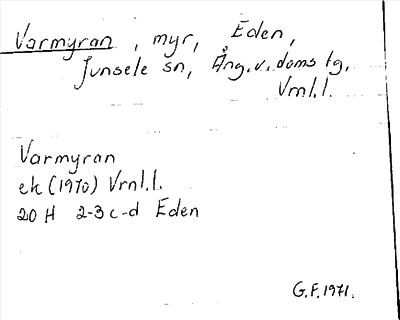 Varmyran, myr, Eden,
Junsele sn, Ång.v.doms tg,
Vrnl.l.
Varmyran
ek (1970) Vrnl.l.
20 H 2-3 c-d Eden
G.F.1971.